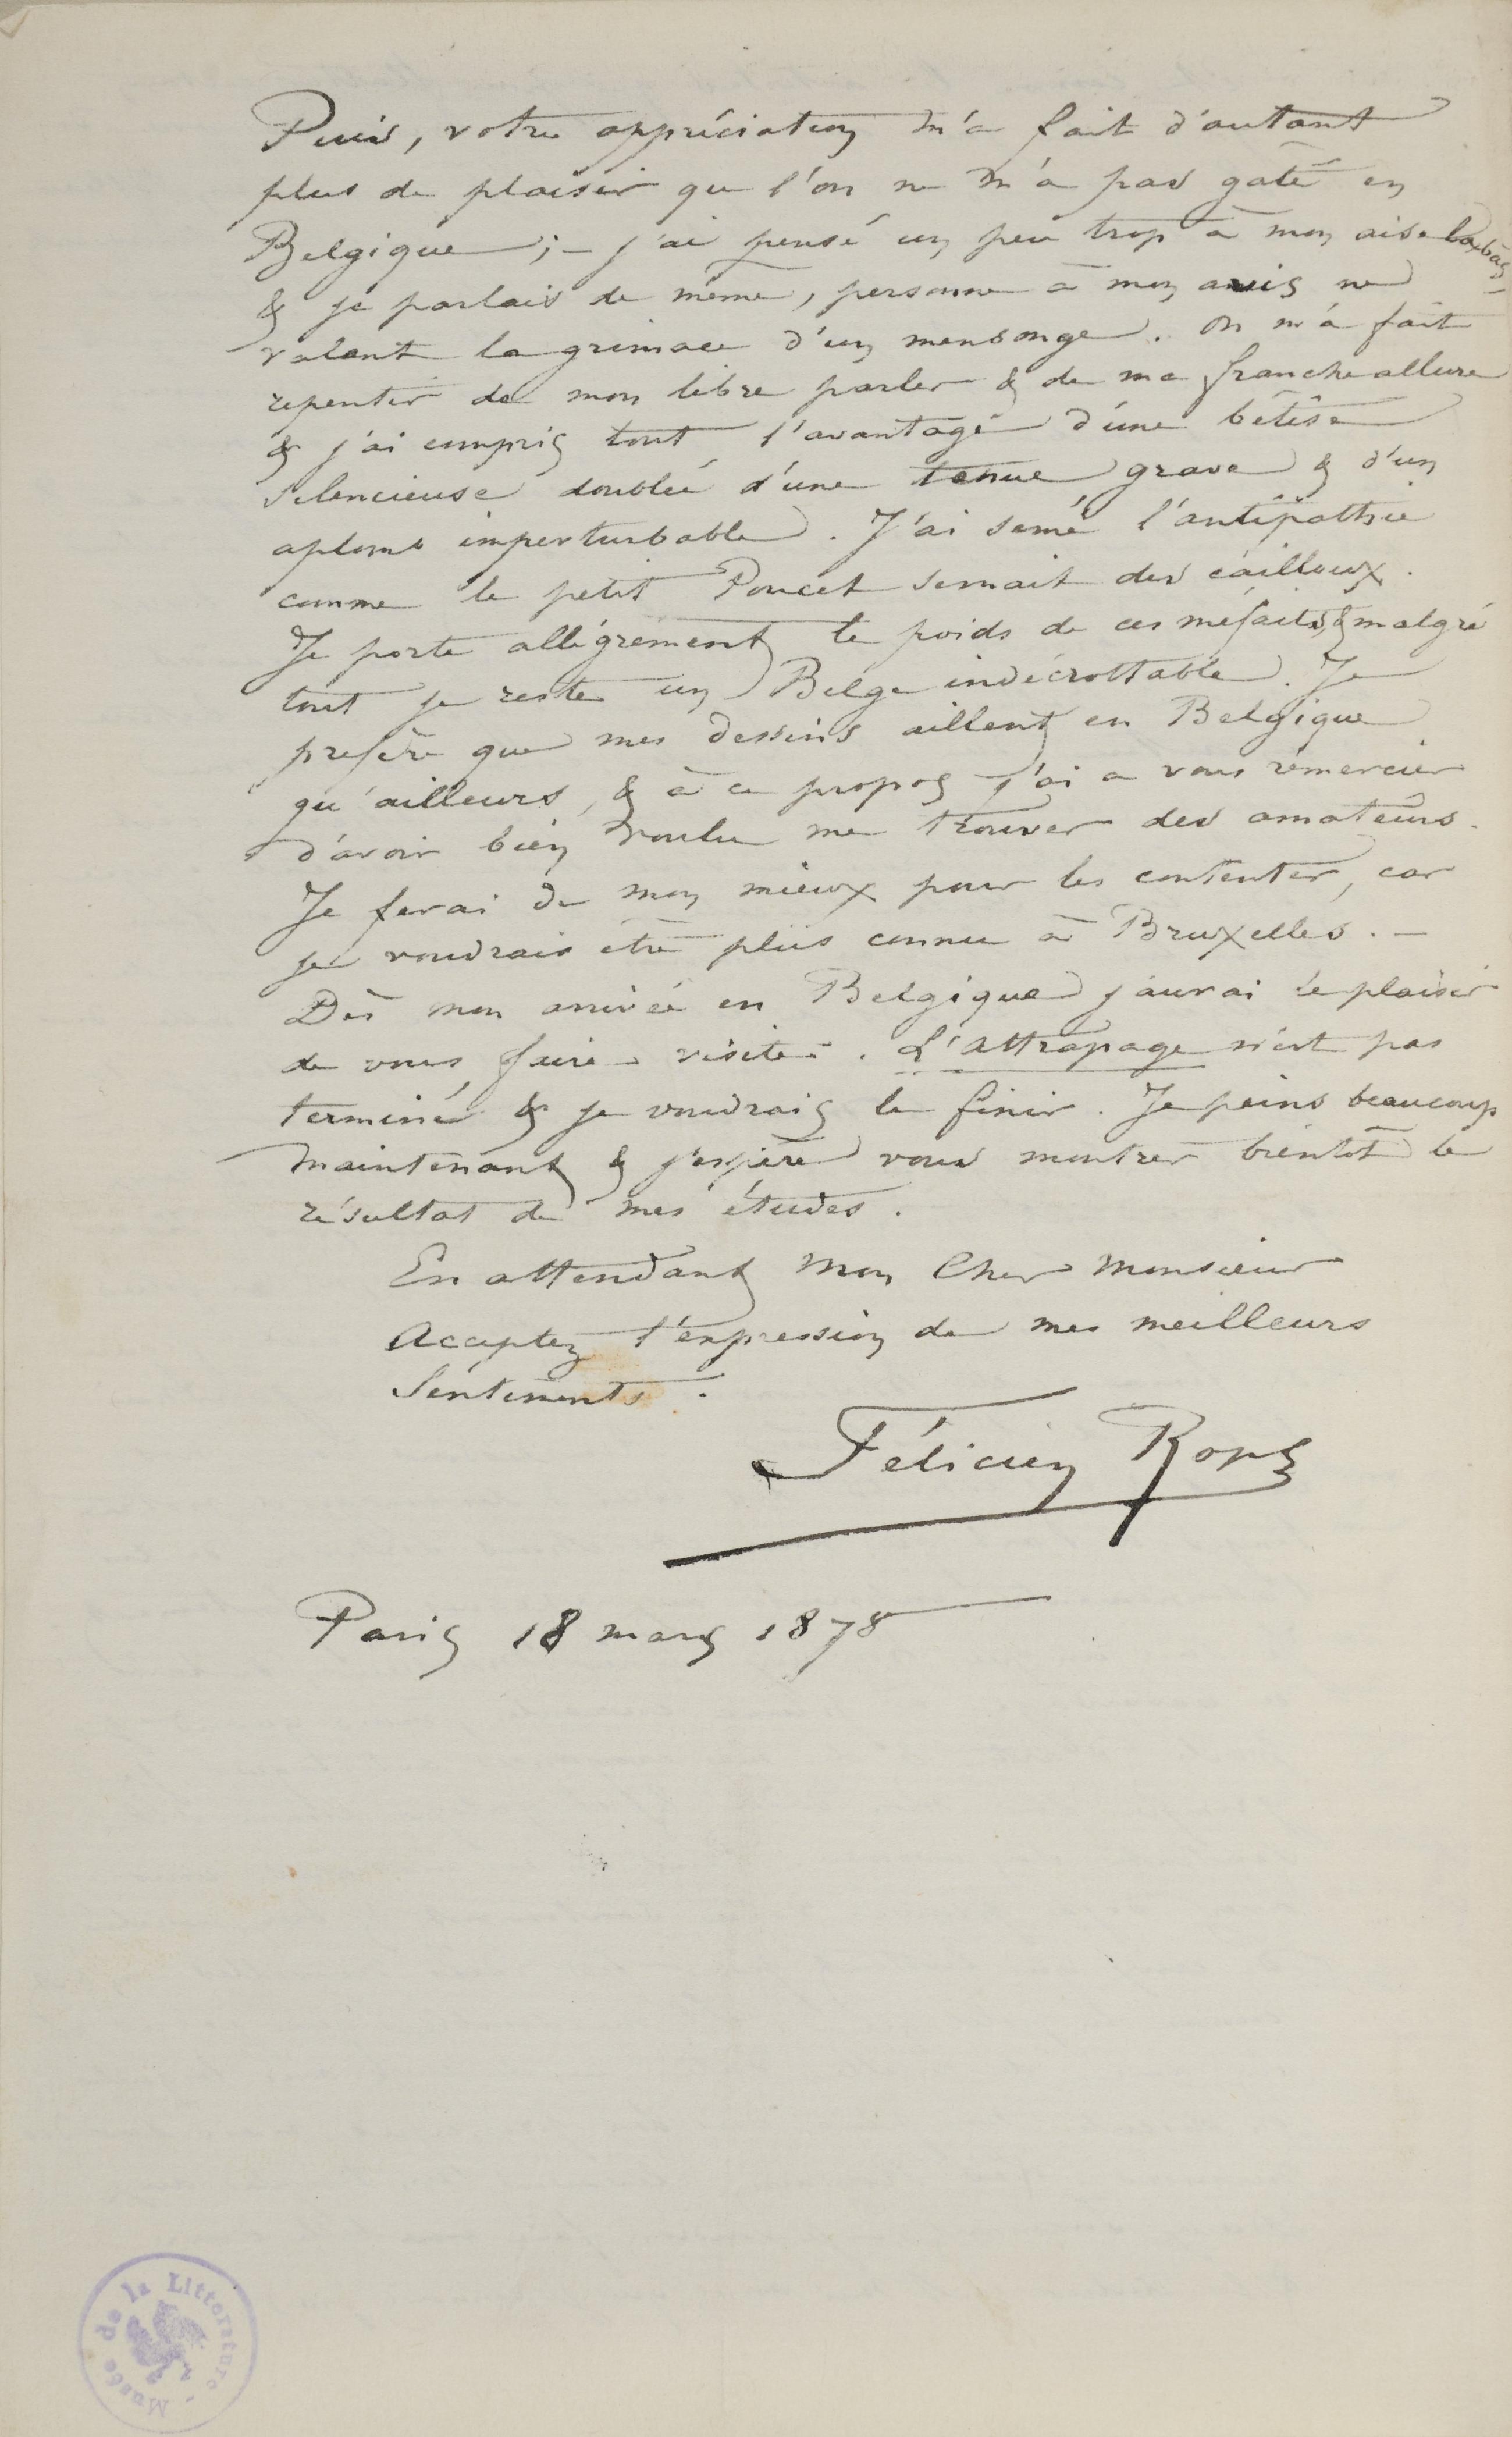 Puis, votre appréciation m'a fait d'autant
plus de plaisir que l'on ne m'a pas gâté en
Belgique ; – j'ai pensé un peu trop à mon aise là-bas –
& je parlais de même, personne à mon avis ne
valant la grimace d'un mensonge. On m'a fait
repentir de mon libre parler & de ma franche allure
& j'ai compris tout l'avantage d'une bêtise
silencieuse doublée d'une tenue grave & d'un
aplomb imperturbable. J'ai semé l'antipathie
comme le petit Poucet semait des cailloux.
Je porte allégrement le poids de ces méfaits, & malgré
tout je reste un Belge indécrottable. Je
préfère que mes dessins aillent en Belgique
qu'ailleurs, & à ce propos j'ai a vous remercier
d'avoir bien voulu me trouver des amateurs.
Je ferai de mon mieux pour les contenter, car
je voudrais être plus connu à Bruxelles. –
Dès mon arrivée en Belgique j'aurai le plaisir
de vous faire visite. L'attrapage n'est pas
terminé & je voudrais le finir. Je peins beaucoup
maintenant & j'espère vous montrer bientôt le
résultat de mes études.
En attendant mon Cher Monsieur
Acceptez l'expression de mes meilleurs
Sentiments.
Félicien Rops
Paris 18 mars 1878
Musée de la Littérature -